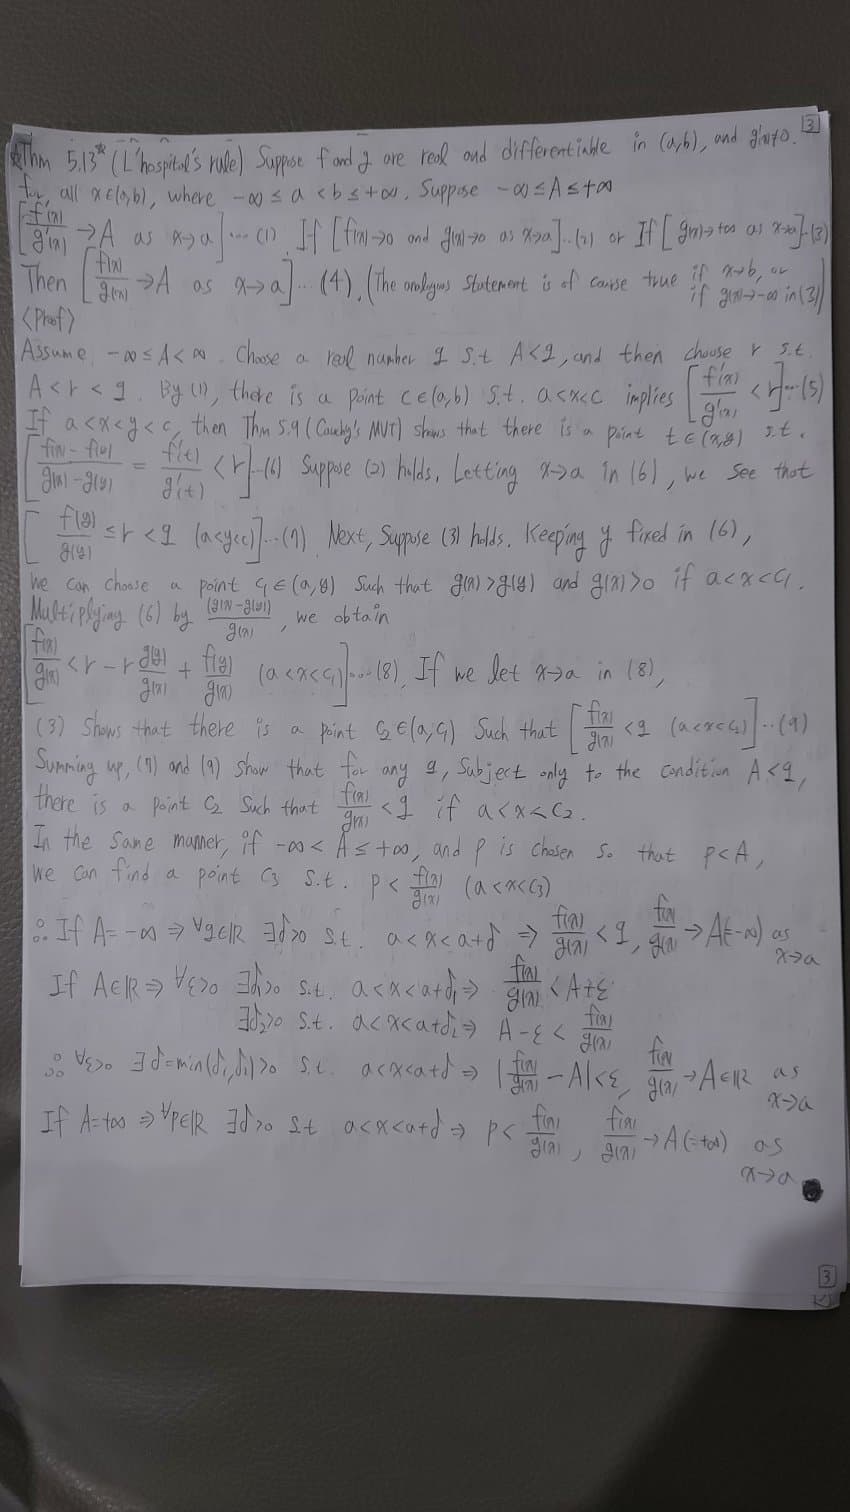 3
*Thm 5.13* (L'hospital's rule) Suppose f and g are real and differentiable in (a,b), and g'(x)≠0.
for, all x∈(a,b), where -∞ ≤ a < b ≤ +∞. Suppose -∞ ≤ A ≤ +∞
[f'(x)/g'(x) → A as x→a] ... (1). If [f(x)→0 and g(x)→0 as x→a]..(2) or If [g(x)→+∞ as x→a]..(3)
Then [f(x)/g(x) → A as x→a] ... (4). (The analogous statement is of course true if x→b, or if g(x)→-∞ in (3))
<Proof>
Assume, -∞ ≤ A < ∞. Choose a real number q s.t A<q, and then choose r s.t.
A < r < q. By (1), there is a point c∈(a,b) s.t. a<x<c implies [f'(x)/g'(x) < r]...(5)
If a<x<y<c, then Thm 5.9 (Cauchy's MVT) shows that there is a point t∈(x,y) s.t.
[f(x)-f(y)/g(x)-g(y) = f'(t)/g'(t) < r]...(6) Suppose (2) holds. Letting x→a in (6), we see that
[f(y)/g(y) ≤ r < q (a<y<c)]...(7) Next, Suppose (3) holds. Keeping y fixed in (6),
we can choose a point c₁∈(a,y) such that g(x)>g(y) and g(x)>0 if a<x<c₁.
Multiplying (6) by (g(x)-g(y))/g(x), we obtain
[f(x)/g(x) < r - r g(y)/g(x) + f(y)/g(x) (a<x<c₁)]...(8), If we let x→a in (8),
(3) shows that there is a point c₂∈(a,c₁) such that [f(x)/g(x) < q (a<x<c₂)]..(9)
Summing up, (7) and (9) show that for any q, subject only to the condition A<q,
there is a point c₂ such that f(x)/g(x) < q if a<x<c₂.
In the same manner, if -∞ < A ≤ +∞, and p is chosen so that p<A,
we can find a point c₃ s.t. p < f(x)/g(x) (a<x<c₃)
∴ If A = -∞ ⇒ ∀q∈ℝ ∃δ>0 s.t. a<x<a+δ ⇒ f(x)/g(x) < q, f(x)/g(x) → A(=-∞) as x→a
If A∈ℝ ⇒ ∀ε>0 ∃δ₁>0 s.t. a<x<a+δ₁ ⇒ f(x)/g(x) < A+ε
∃δ₂>0 s.t. a<x<a+δ₂ ⇒ A-ε < f(x)/g(x)
∴ ∀ε>0 ∃δ=min(δ₁,δ₂)>0 s.t. a<x<a+δ ⇒ |f(x)/g(x) - A|<ε, f(x)/g(x) → A∈ℝ as x→a
If A=+∞ ⇒ ∀p∈ℝ ∃δ>0 s.t a<x<a+δ ⇒ p< f(x)/g(x), f(x)/g(x) → A(=+∞) as x→a
3